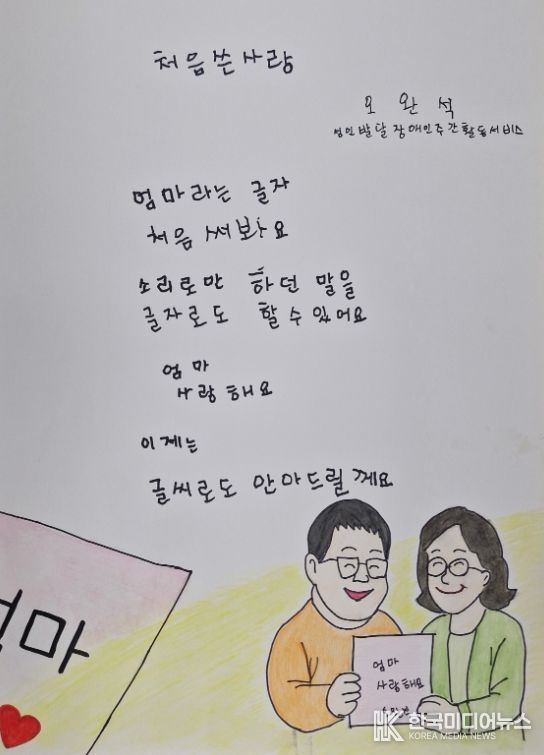 처음 쓴 사랑
오 완 석
성인발달장애인주간활동서비스
엄마라는 글자
처음 써봐요
소리로만 하던 말을
글자로도 할 수 있어요
엄마
사랑해요
이제는
글씨로도 안아드릴께요
엄마
엄마
사랑해요
한국미디어뉴스
KOREA MEDIA NEWS